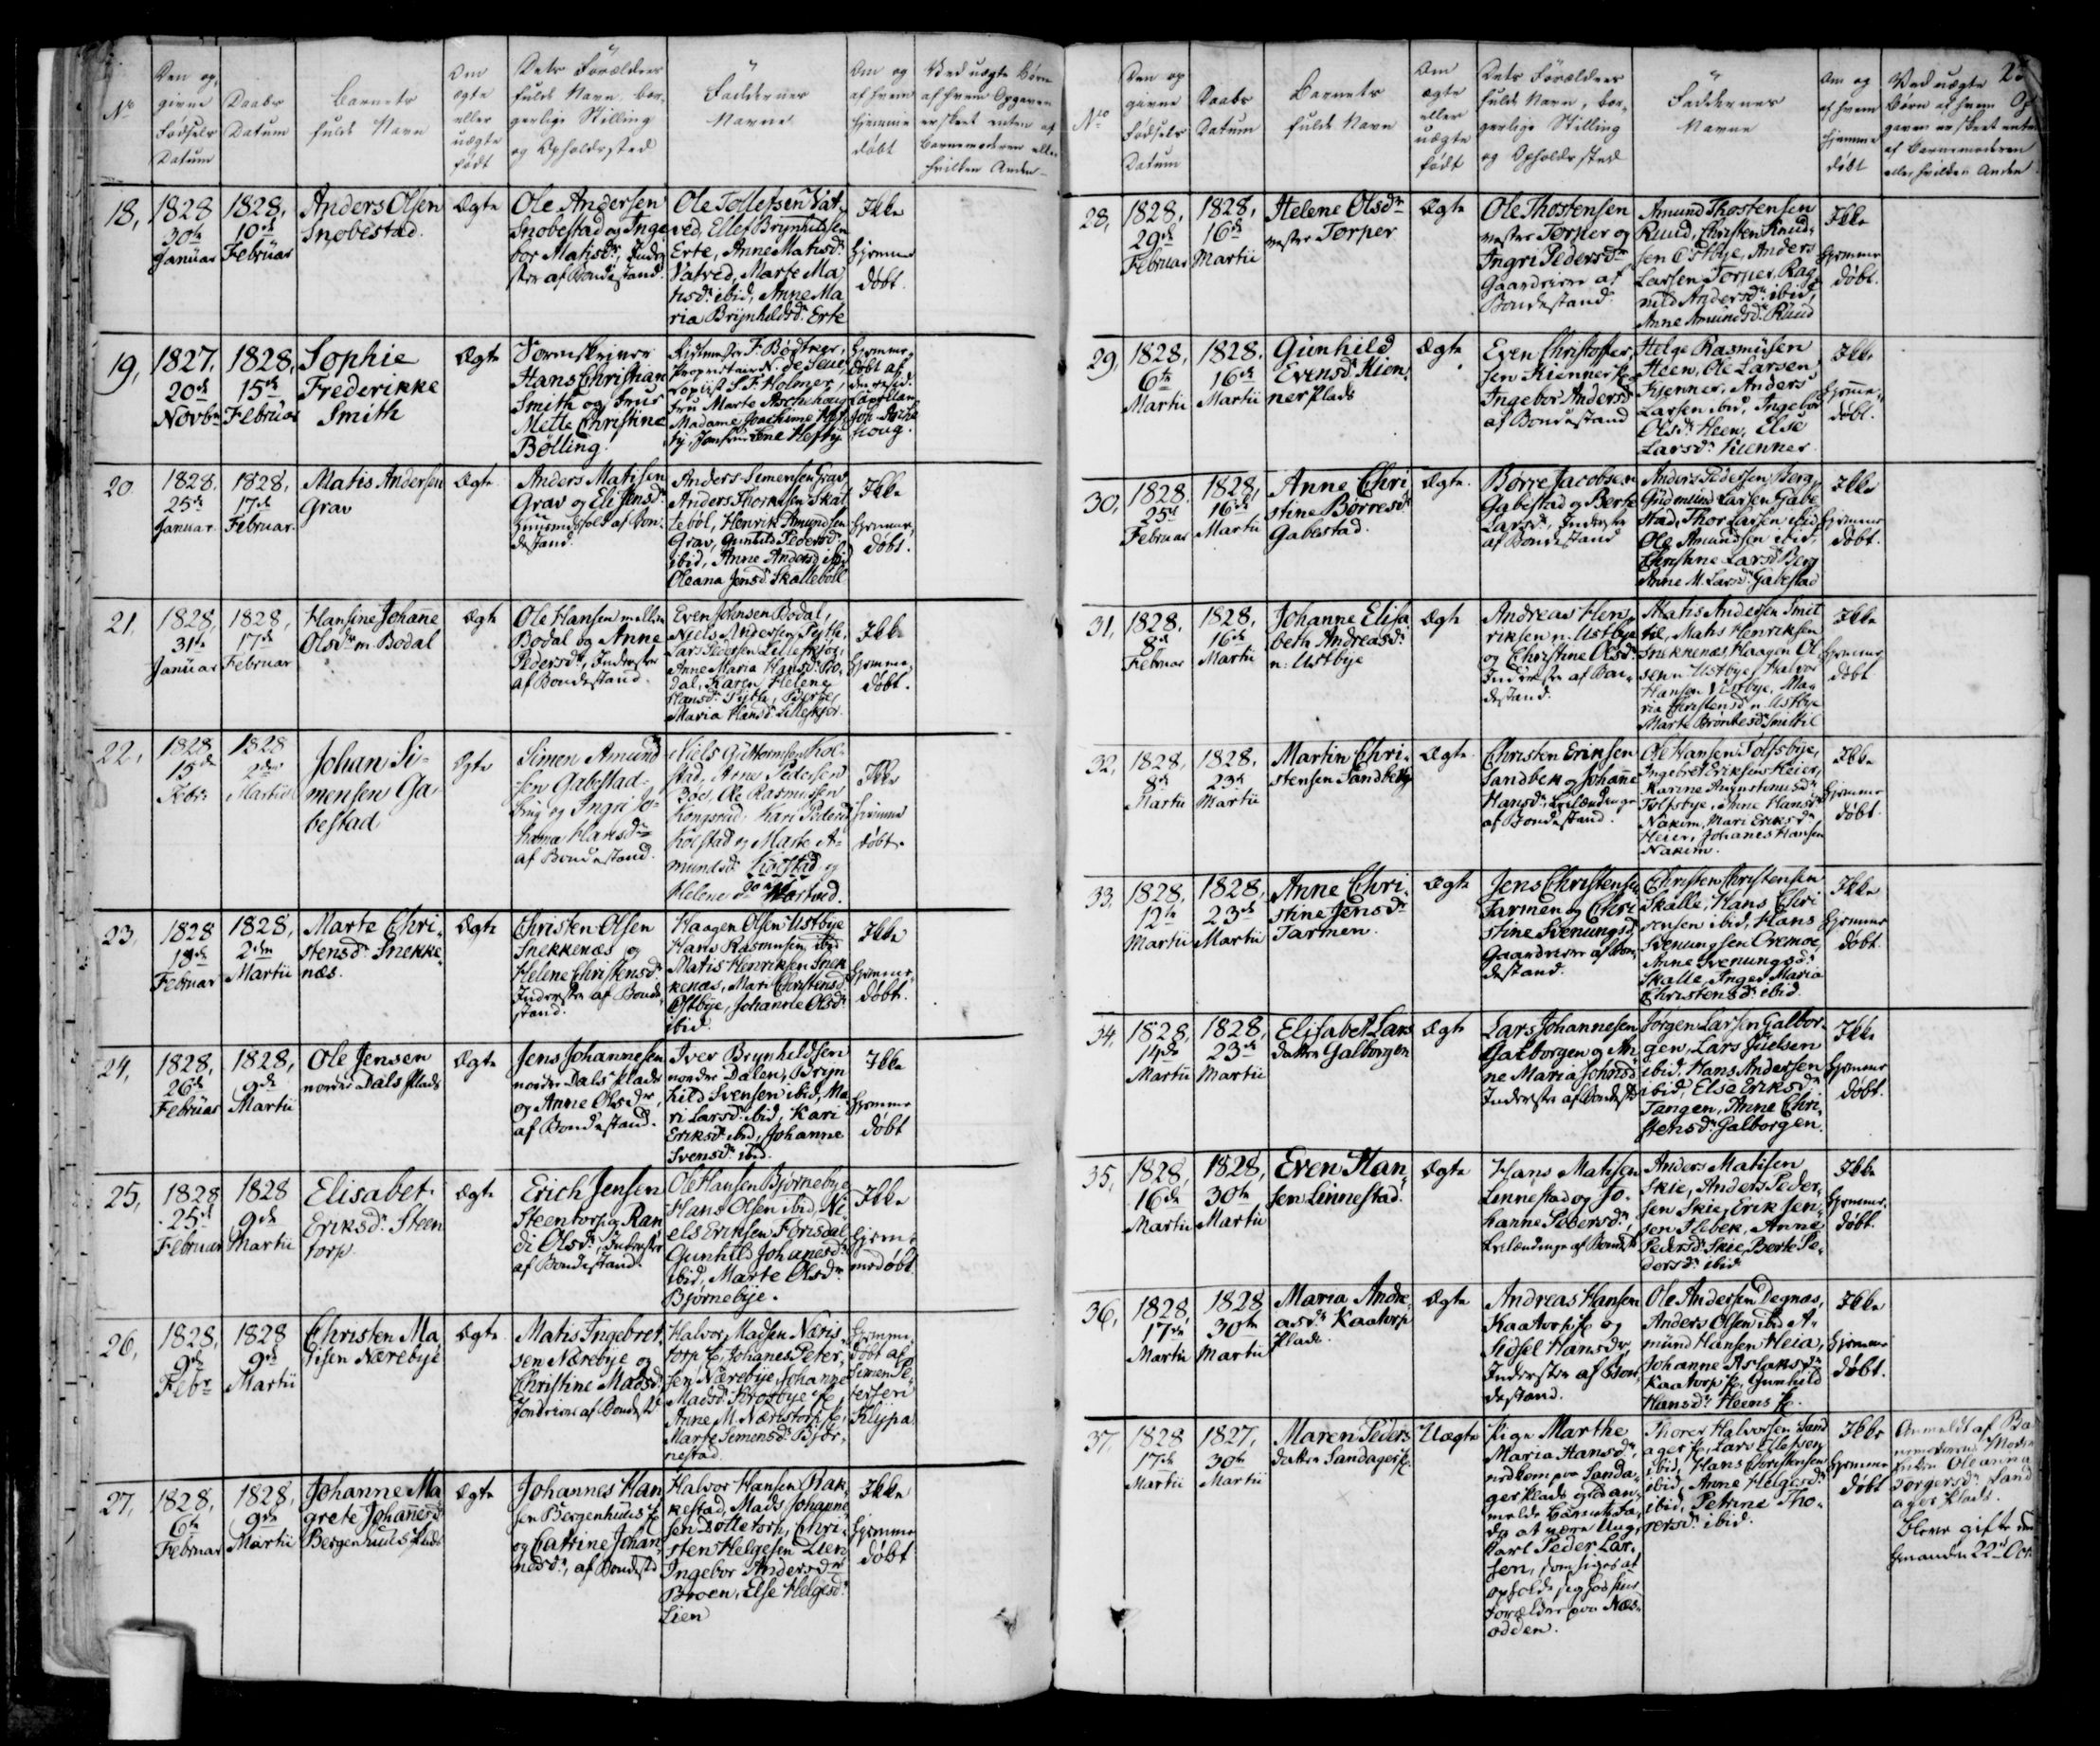 No
Den op-
givne
Fødsels
Datum
Daabs
Datum
Barnets
fulde Navn
Om
ægte
eller
uægte
født
Dets Forældres
fulde Navn, bor-
gerlige Stilling
og Opholdssted
Faddernes
Navne
Om og
af hvem
hjemme
døbt
Ved uægte Børn
af hvem Opgaven
er skeet enten af
Barnemoderen eller
hvilken Anden
18,
1828
30te
Januar
1828,
10de
Februar
Anders Olsen
Snobestad.
Ægte
Ole Andersen
Snobestad og Inge
bor Matisdr, Inder
ster af Bondestand.
Ole Tollefsen Vat-
ved, Ellef Brynhildsen
Erte, Anne Matisdr
Vatved, Marte Ma
tisdr ibid, Anne Ma
ria Brynhildsdr Erte
Ikke
hjemme
døbt.
19,
1827,
20de
Novbr
1828,
15de
Februar
Sophie
Frederikke
Smith
Ægte
Hans Christian
Smith og Frue
Mette Christine
Bølling.
S. F. Holmer,
Fru Marte Aschehoug
Madame Joachime Hef
ty, Jomfrue Ine Hefty
hjemme
døbt af
den resid.
Capellan
Joh. Asche
houg.
20.
1828.
25de
Januar.
1828,
17de
Februar.
Matis Andersen
Grav
Ægte.
Anders Matisen
Grav og Eli Jensdr
Huusmandsfolk af Bon-
destand.
Anders Simensen Grav
Anders Thorkilsen Skal
lebøl, Henrik Amundsen
Grav, Gunhild Pedersdr
ibid, Anne Andersd ibid
Oleana Jensd Skallebøll
Ikke
hjemme
døbt.
21,
1828,
31te
Januar
1828,
17de
Februar
Hansine Johane
Olsdr m. Bodal
Ægte
Ole Hansen mellem
Bodal og Anne
Pedersdr, Inderster
af Bondestand.
Even Johnsen Bodal,
Niels Andersen Sythe,
Lars Pedersen Lillefkjor,
Anne Maria Hansdr Bo-
dal, Karen Helene
Hansdr Sythe,
Maria Hansd Lillefkjor.
Ikke
hjemme
døbt.
22,
1828,
15de
Febr
1828
2den
Martii
Johan Si-
mensen Ga-
bestad
Ægte
Simon Amund
sen Gabestad-
brug og Ingri Jo-
hanna Hansdr
af Bondestand.
Niels Guttormsen Kol-
stad, Arne Pedersen
Bøe, Ole Rasmussen
Kongsrud, Kari Pedersd
Kolstad og Marte A-
mundsd Ligostad og
Helene
Ikke
hjemme
døbt.
23,
1828
18de
Februar
1828,
2den
Martii
Marte Chri-
stensd. Snekke-
næs.
Ægte
Christen Olsen
Snekkenæs og
Helene Christensdr
Inderster af Bonde-
stand.
Haagen Olsen Ustbye
Hans Rasmusen ibid
Matis Henriksen Snek
kenæs, Mari Christensd
Østbye, Johanne Olsdr
ibid.
Ikke
hjemme-
døbt.
24,
1828,
26de
Februar
1828,
9de
Martii
Ole Jensen
nordre Dals Plads
Ægte
Jens Johannesen
nordre Dals Plads
og Anne Olsdr,
af Bondestand.
Iver Brynhildsen
nordre Dalen, Bryn
hild Svensen ibid, Ma
ri Larsd. ibid, Kari
Eriksd. ibid, Johanne
Svensdr ibid.
Ikke
hjemme
døbt
25,
1828
25de
Februar
1828
9de
Martii
Elisabet
Eriksd. Steen
torp.
Ægte
Erich Jensen
Steentorp og Ran
di Olsdr, Inderster
af Bondestand.
Ole Hansen Bjørnebye
Hans Olsen ibid, Ni-
els Eriksen Forisdal
Gunhild Johanesdr
ibid, Marte Olsdr
Bjørnebye.
Ikke
hjem-
medøbt.
26,
1828,
9de
Febr
1828
9de
Martii
Christen Ma
tisen Nærebye
Ægte
Matis Ingebret-
sen Nærebye og
Christine Madsd.
Gaardeiere af Bondestd
Halvor Madsen Næris
torp, Johanes Peter-
sen Nærebye, Johanne
Madsd. Brosbye
Anne M. Næristorp
Marte Simensd Bjør-
nestad.
hjemme
døbt af
Simen Pe-
tersen
Klypa.
27,
1828,
6te
Februar
1828,
9de
Martii
Johanne Ma
grete Johanesd
Bergenhuus Plads
Ægte
Johannes Han
sen Bergenhuus
og Catrine Johan-
nesdr, af Bondestd
Halvor Hansen Hak-
kestad, Mads Johanne
sen Dolletorp, Chri-
sten Helgesen Lien
Ingebor Andersdr
Broen, Else Helgesd.
Lien
Ikke
hjemme
døbt
25
No
Den op
givne
Fødsels
Datum
Daabs
Datum
Barnets
fulde Navn
Om
ægte
eller
uægte
født
Dets Forældres
fulde Navn, bor-
gerlige Stilling
og Opholdssted
Faddernes
Navne
Om og
af hvem
hjemme
døbt
Ved uægte
Børn af hvem Op
gaven er skeet enten
af Barnemoderen
eller hvilken Anden
28,
1828,
29de
Februar
1828,
16de
Martii
Helene Olsdr
vestre Torper
Ægte
Ole Thostensen
vestre Torper og
Ingri Pedersdr
Gaardeiere af
Bondestand.
Amund Thostensen
Ruud, Christen Knud-
sen Østbye, Anders
Larsen Torper, Rag
nild Andersdr ibid,
Anne Amundsd. Ruud
Ikke
hjemme
døbt.
29,
1828,
6te
Martii
1828.
16de
Martii
Gunhild
Evensd. Kien-
ner Plads
Ægte
Even Christoffer-
sen Kienner
Ingebor Andersd
af Bondestand
Helge Rasmusen
Heen, Ole Larsen
Kjenner, Anders
Larsen ibid, Ingebor
Olsdr Heen, Else
Larsdr Kienner.
Ikke
hjemme-
døbt.
30,
1828.
25de
Februar
1828,
16de
Martii
Anne Chri
stine Børresd
Gabestad.
Ægte.
Børre Jacobsen
Gabestad og Berte
Larsd, Inderster
af Bondestand
Anders Pedersen Berg,
Gudmund Larsen Gabe
stad, Thor Larsen ibid
Ole Amundsen ibid,
Christine Larsd Berg
Anne M. Larsdr Gabestad
Ikke
hjemme
døbt.
31,
1828.
8de
Februar
1828.
16de
Martii
Johanne Elisa
beth Andreasdr
n. Ustbye
Ægte
Andreas Hen-
riksen n. Ustbye
og Christine Olsdr
Inderster af Bon-
destand.
Matis Andersen Smit
til, Matis Henriksen
Snekkenæs, Haagen Ol
sen n Ustbye, Halvor
Hansen Ustbye, Ma-
ria Christensd n. Ustbye
Marte Brøntesd Smittil
Ikke
hjemme
døbt
32,
1828,
8de
Martii
1828.
23de
Martii
Martin Chri-
stensen Sandbek
Ægte.
Christen Eriksen
Sandbek og Johane
Hansdr, Leilændinge
af Bondestand.
Ole Hansen Toltsbye,
Ingebret Eriksen Heier,
Karine
Toltsbye, Anne Hansdr
Nakim, Mari Eriksdr
Heier, Johanes Hansen
Nakim.
Ikke
hjemme
døbt.
33,
1828,
12te
Martii
1828,
23de
Martii
Anne Chri-
stine Jensdr
Tarmen.
Ægte
Jens Christensen
Tarmen og Chri
stine Svenungsd
Gaardeiere af Bon-
destand.
Christen Christensen
Skalle, Hans Chri
stensen ibid, Hans
Svenungsen Oremoe,
Anne Svenungsdr
Skalle, Inger Maria
Christensdr ibid.
Ikke
hjemme
døbt.
34,
1828,
14de
Martii
1828,
23de
Martii
Elisabet Lars
datter Galborgen
Ægte
Lars Johannesen
Galborgen og An-
ne Maria Johnsd
Inderster af Bondestd
Jørgen Larsen Galbor-
gen, Lars Juelsen
ibid, Hans Andersen
ibid, Else Eriksdr
Tangen, Anne Chri-
stensdr Galborgen.
Ikke
hjemme
døbt.
35,
1828,
16de
Martii
1828,
30te
Martii
Even Han-
sen Linnestad.
Ægte
Hans Matisen
Linnestad og Jo-
hanne Pedersdr,
Leilændinge af Bondestd
Anders Matisen
Skie, Anders Peder-
sen Skie, Erik Jen-
sen Flebek, Anne
Pedersd Skie, Berte Pe-
dersdr ibid
Ikke
hjemme-
døbt.
36,
1828,
17de
Martii
1828
30te
Martii
Maria Andre-
asdr Kaatorp
Plads.
Ægte
Andreas Hansen
Kaatorp og
Sidsel Hansdr,
Inderster af Bon-
destand.
Ole Andersen Degnæs,
Anders Olsen ibid A-
mund Hansen Heia,
Johanne Aslaksdr
Kaatorp, Gunhild
Hansdr Heens
Ikke
hjemme
døbt.
37,
1828
17de
Martii
1827,
30te
Martii
Maren Peders
datter Sandager
Uægte
Pige Marthe
Maria Hansdr
nedkom paa Sanda-
ger Plads og an-
meldt Barnets Fa-
der at være Ung-
karl Peder Lar-
sen, som siges at
opholde sig hos sine
Forældre paa Næs-
odden.
Thorer Halvorsen Sand
ager, Lars Ellefsen
ibid, Hans Christensen
ibid, Anne Helgesdr
ibid, Petrine Tho-
rersdr ibid.
Ikke
hjemme
døbt
Anmeldt af Ba
rnemoderens Moder
Enken Oleanna
Torgersdr Sand
ager Plads.
bleve gifte
22de Oct.